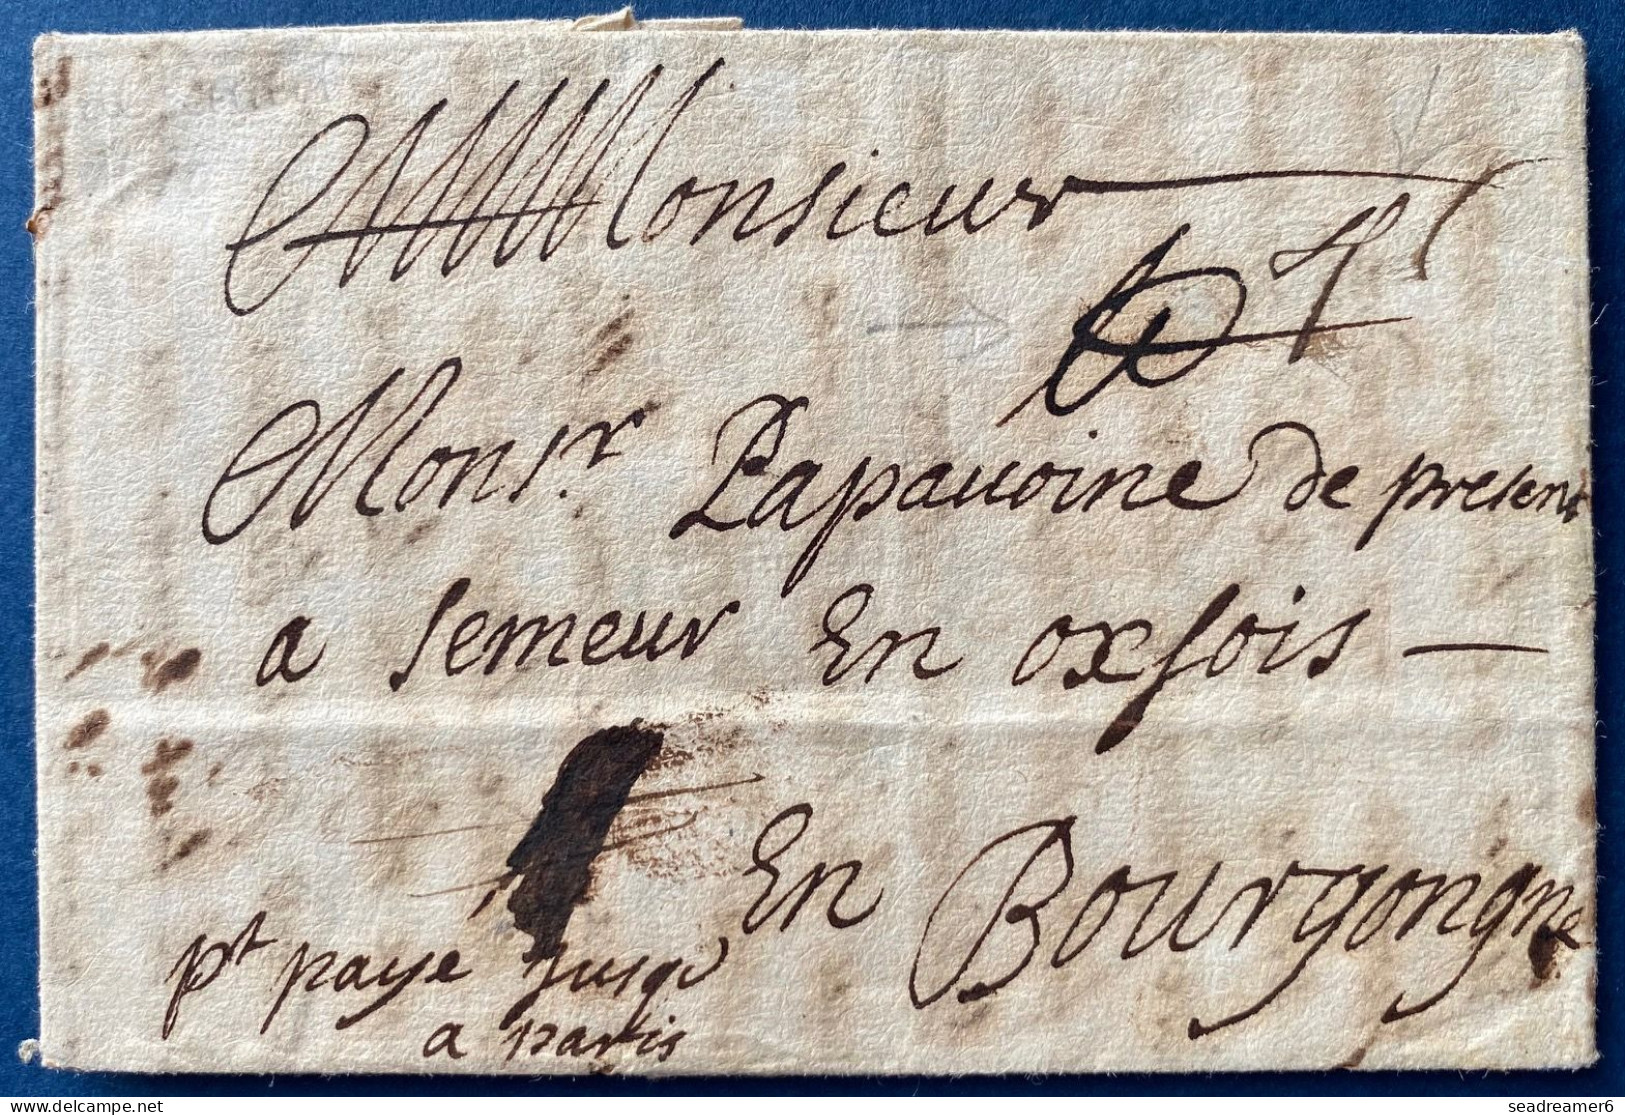 Monsieur
Monsr. Papauoine de present
a semeur En oxsois —
En Bourgongne
pt paye Jusqu
a paris
delcampe.net
seadreamer6